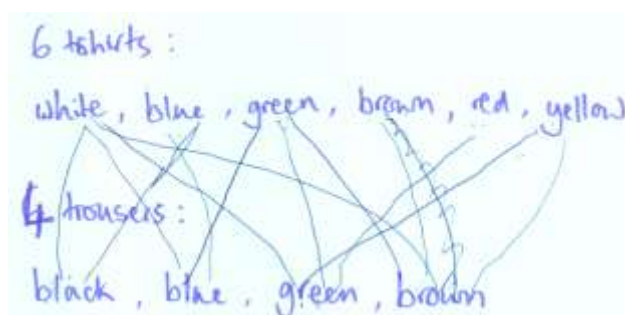 6 tshirts :
white, blue, green, brown, red, yellow
4 trousers :
black, blue, green, brown